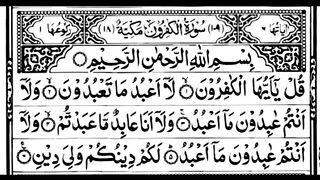 اٰيَاتُهَا ٦ (١٠٩) سُوْرَةُ الْكٰفِرُوْنَ مَكِّيَّةٌ (١٨) رُكُوْعُهَا ١
بِسْمِ اللهِ الرَّحْمٰنِ الرَّحِيْمِ
قُلْ يٰٓاَيُّهَا الْكٰفِرُوْنَ ۝١ لَآ اَعْبُدُ مَا تَعْبُدُوْنَ ۝٢ وَلَآ
اَنْتُمْ عٰبِدُوْنَ مَآ اَعْبُدُ ۝٣ وَلَآ اَنَا عَابِدٌ مَّا عَبَدْتُّمْ ۝٤ وَلَآ
اَنْتُمْ عٰبِدُوْنَ مَآ اَعْبُدُ ۝٥ لَكُمْ دِيْنُكُمْ وَلِيَ دِيْنِ ۝٦